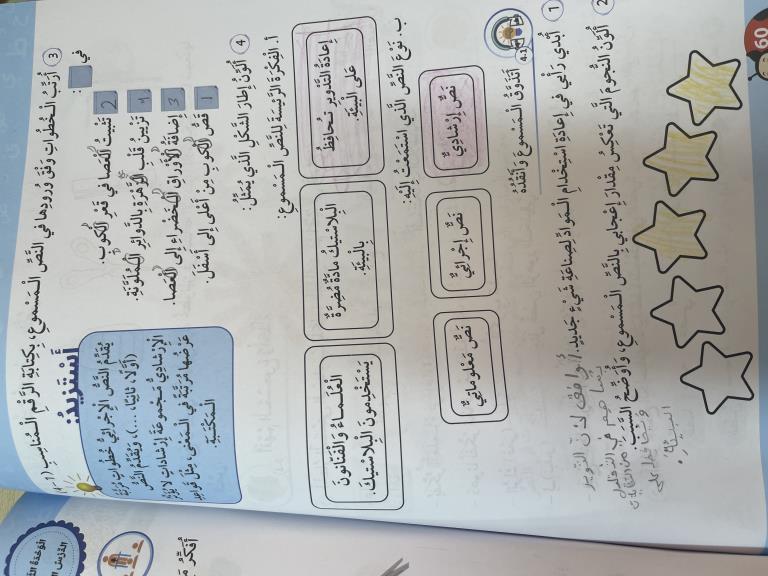 ③ أُرَتِّبُ الْخُطُواتِ وَفْقَ وُرودِها في النَّصِّ الْمَسْموعِ، بِكِتابَةِ الرَّقْمِ الْمُناسِبِ
في
:
2 تَثْبيتُ الْعَصا في قَعْرِ الْكوبِ.
4 تَزْيينُ قَلْبِ الزَّهْرَةِ بِالدَّوائِرِ الْمُلَوَّنَةِ.
3 إِضافَةُ الْأَوْراقِ الْخَضْراءِ إِلى الْعَصا.
1 قَصُّ الْكوبِ مِنْ أَعْلى إِلى أَسْفَلَ.
أَسْتَزيدُ:
يُقَدِّمُ النَّصُّ الْإِجْرائِيُّ خُطُواتٍ
(أَوَّلًا، ثانِيًا، ...)، وَيُقَدِّمُ النَّصُّ
الْإِرْشادِيُّ مَجْموعَةَ إِرْشاداتٍ لا
عَرْضُها مُرَتَّبَةً في الْمَعْنى، مِثْلَ قَواعِدِ
الْمَكْتَبَةِ.
④ أُلَوِّنُ إِطارَ الشَّكْلِ الَّذي يُمَثِّلُ:
أ. الْفِكْرَةَ الرَّئيسَةَ لِلنَّصِّ الْمَسْموعِ:
إِعادَةُ التَّدْويرِ تُحافِظُ
عَلى الْبيئَةِ.
الْبِلاسْتيكُ مادَّةٌ مُضِرَّةٌ
بِالْبيئَةِ.
الْعُلَماءُ وَالْفَنّانونَ
يَسْتَخْدِمونَ الْبِلاسْتيكَ.
ب. نَوْعَ النَّصِّ الَّذي اسْتَمَعْتُ إِلَيْهِ:
نَصٌّ إِرْشادِيٌّ
نَصٌّ إِجْرائِيٌّ
نَصٌّ مَعْلوماتِيٌّ
4.1 أَتَذَوَّقُ الْمَسْموعَ وَأَنْقُدُهُ
① أُبْدي رَأْيي في إِعادَةِ اسْتِخْدامِ الْمَوادِّ لِصِناعَةِ شَيْءٍ جَديدٍ.
أوافق لأن التدوير
يساهم في التقليل
من النفايات
ويحافظ على
البيئة.
② أُلَوِّنُ النُّجومَ الَّتي تَعْكِسُ مِقْدارَ إِعْجابي بِالنَّصِّ الْمَسْموعِ، وَأُوَضِّحُ السَّبَبَ.
60
الْوَحْدَةُ
الدَّرْسُ
أُفَكِّرُ